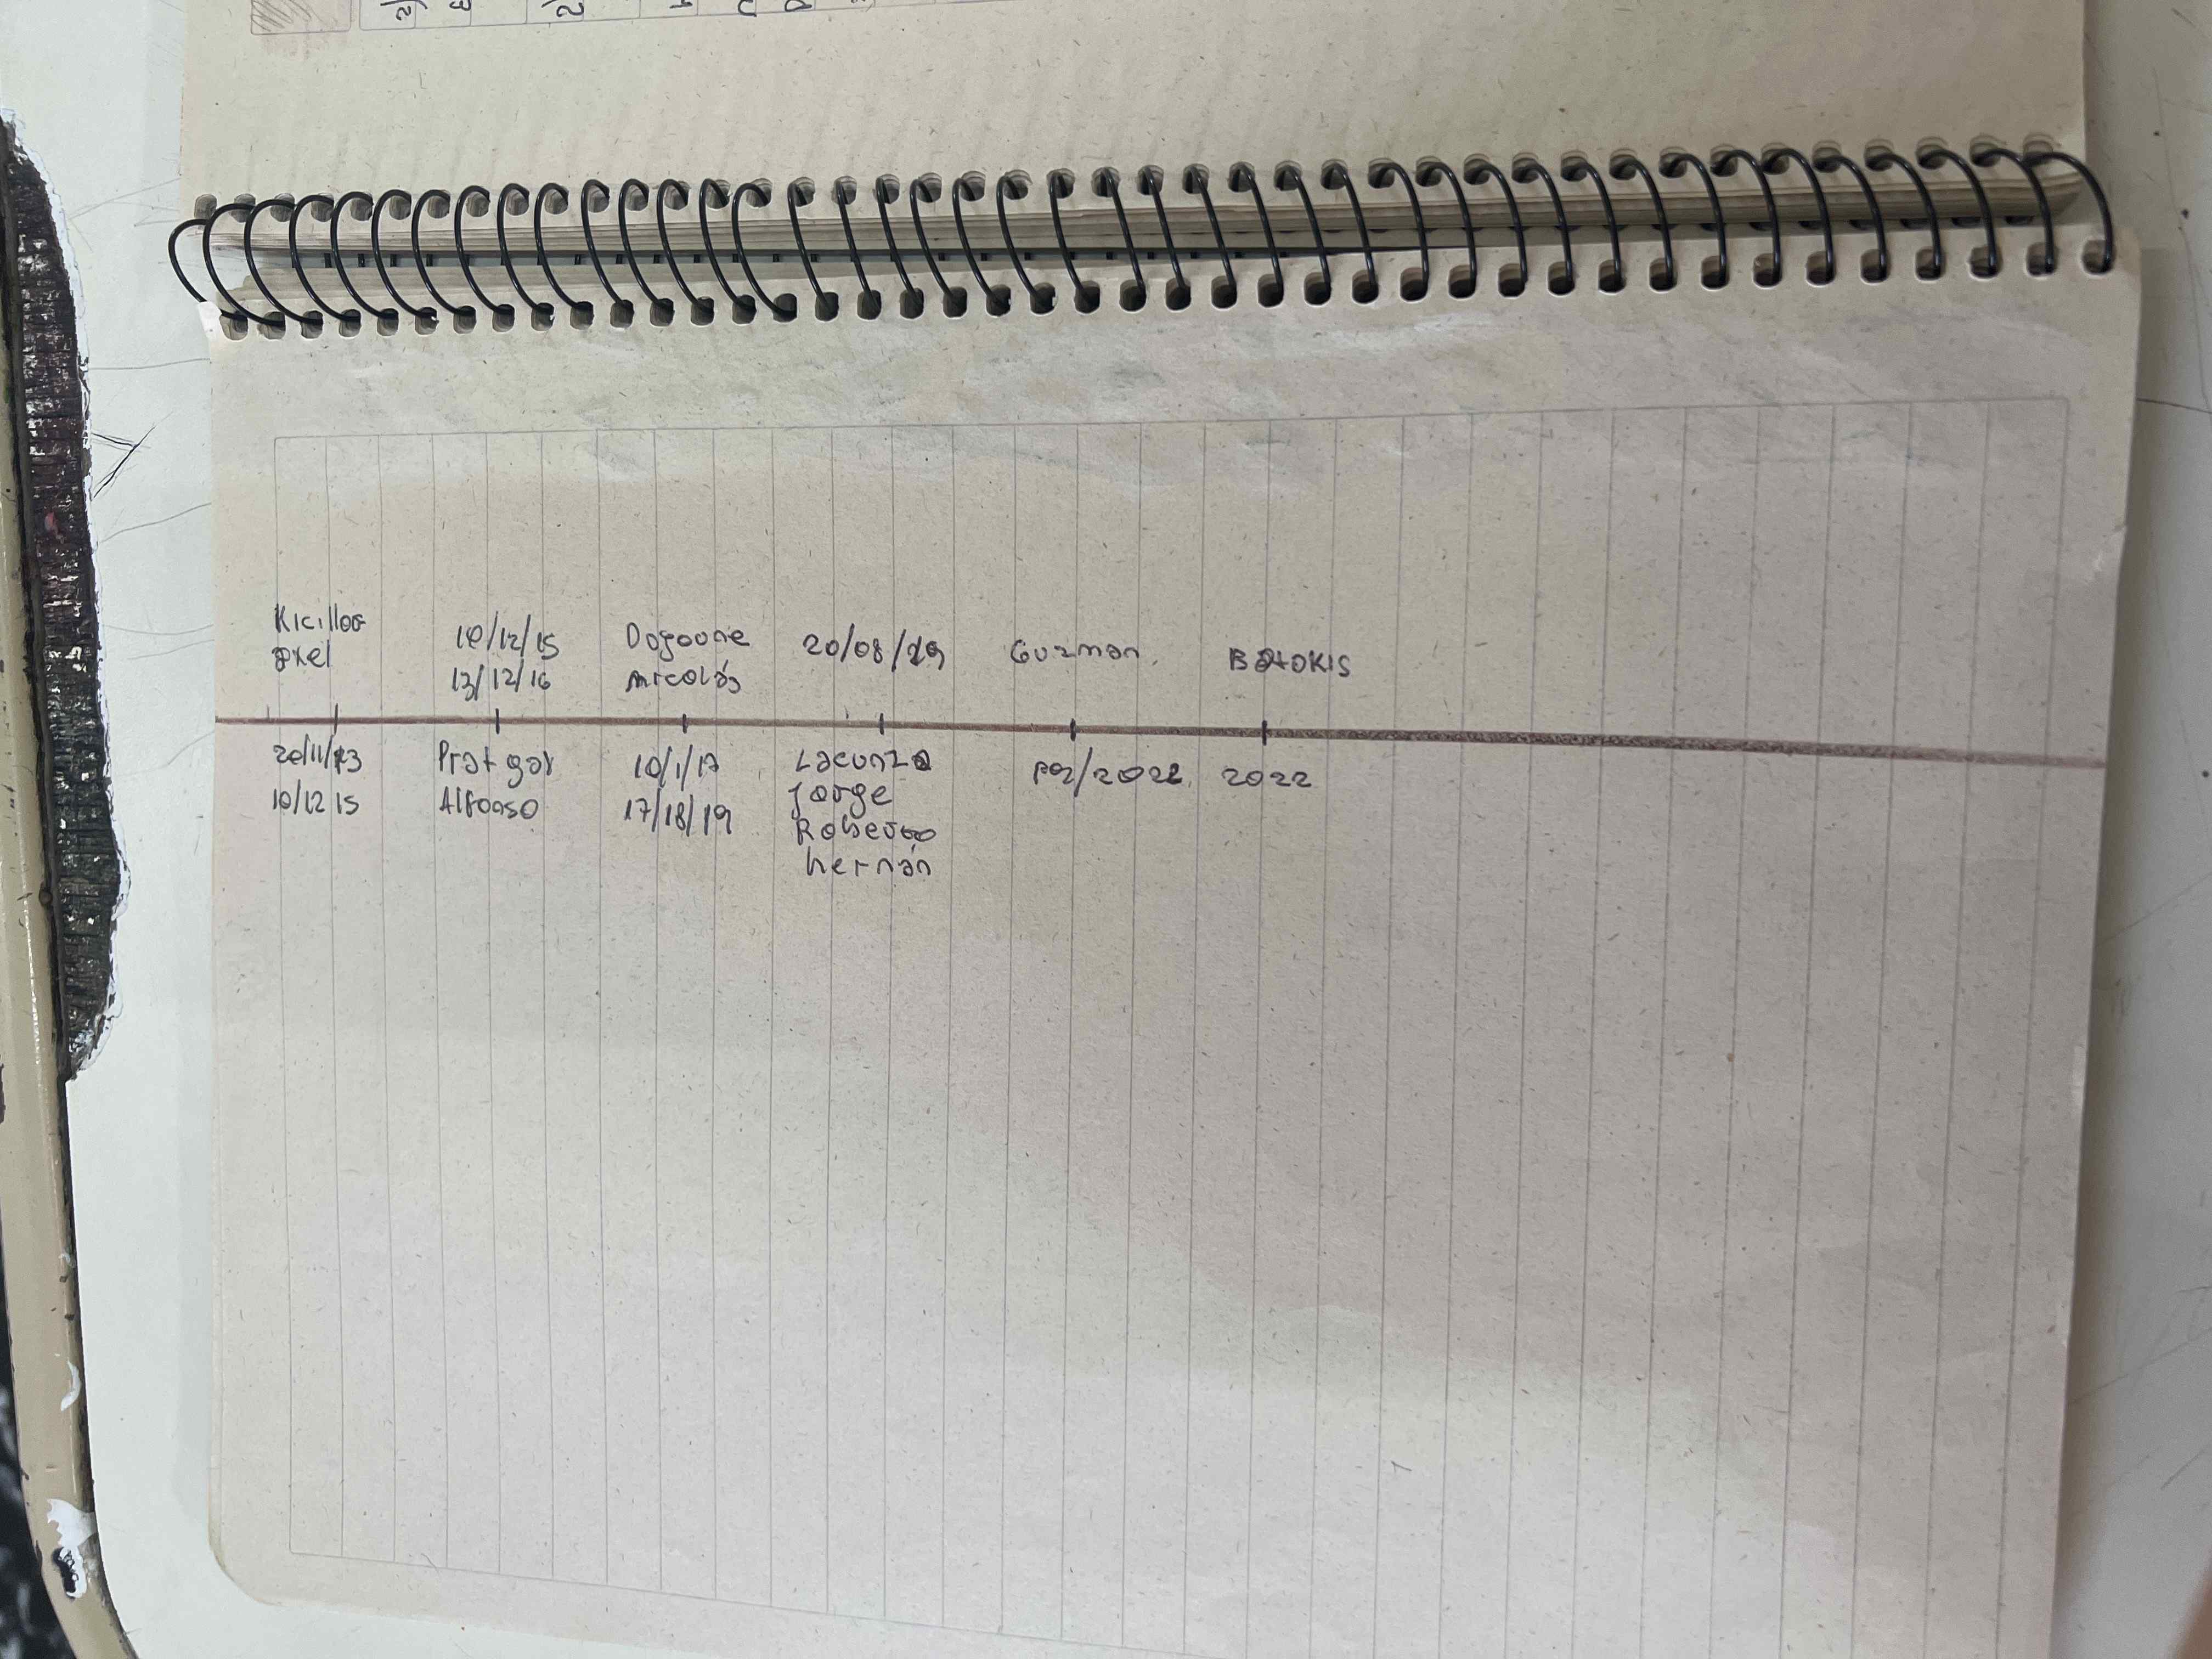 Kicillof
axel
20/11/13
10/12 15
10/12/15
13/12/16
Prat gay
Alfonso
Dogovne
Nicolás
10/1/17
17/18/19
20/08/19
Lacunza
Jorge
Roberto
hernán
Guzman.
/2022
Batakis
2022